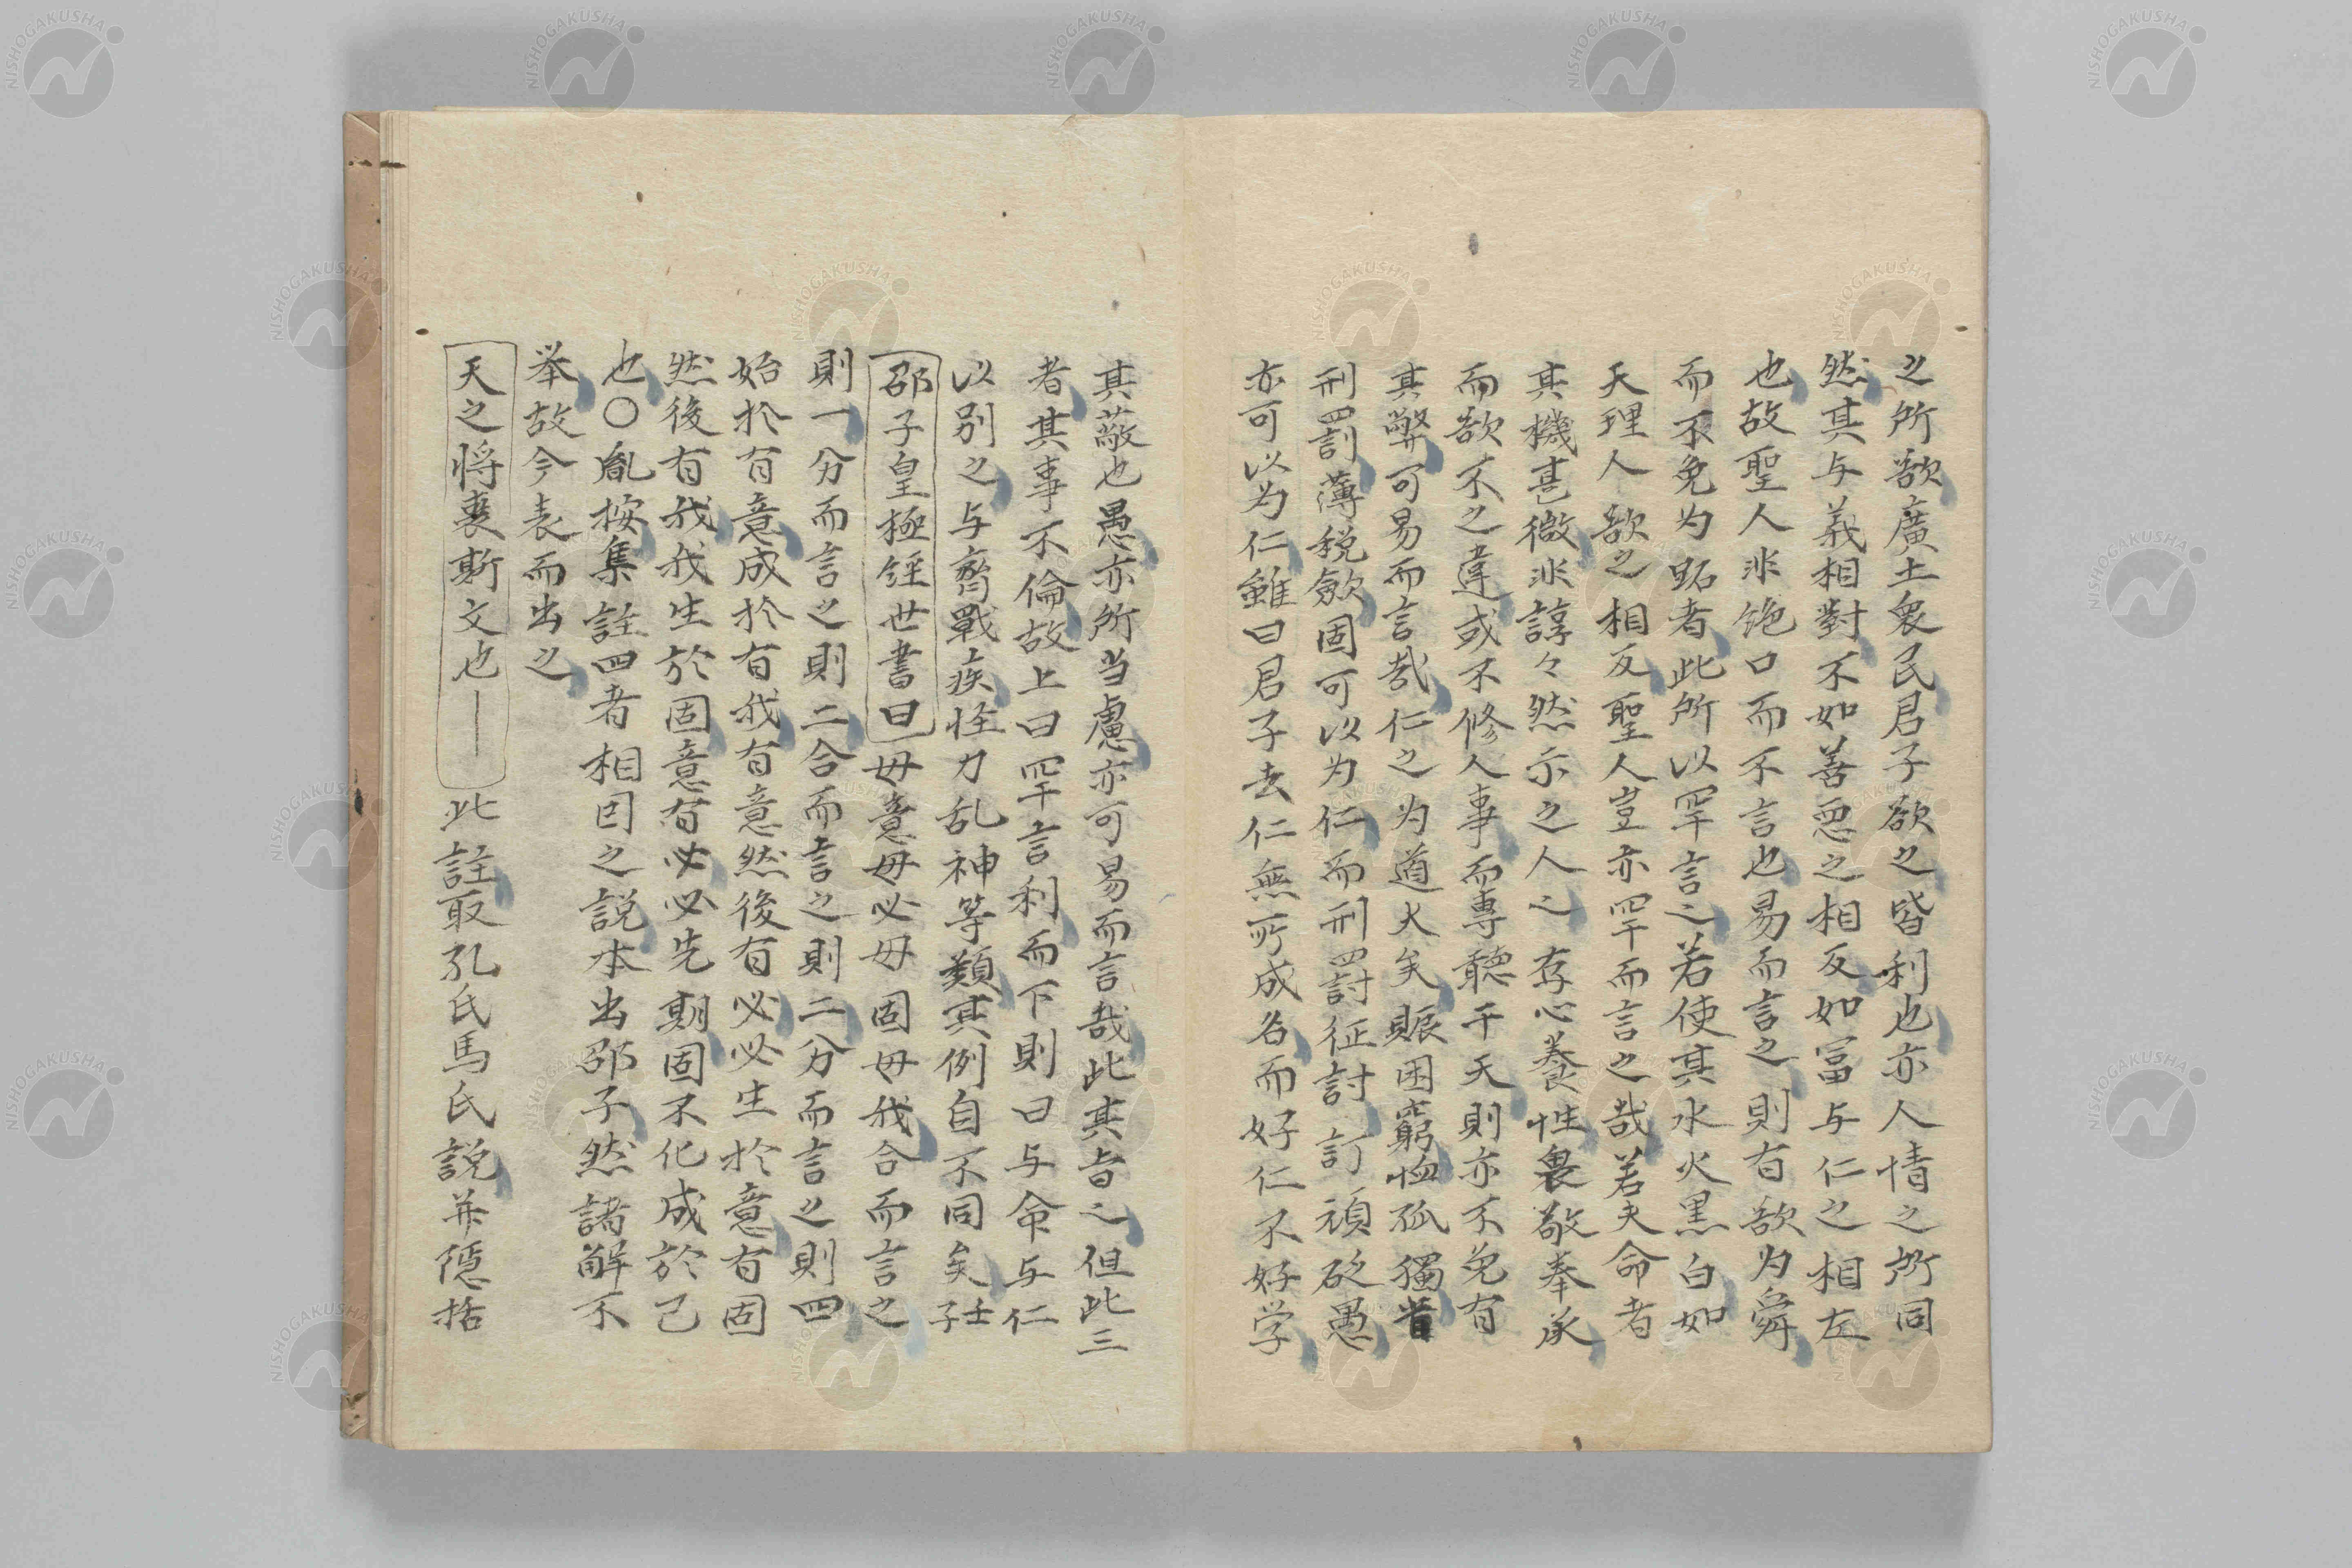 之所欲廣土衆民君子欲之皆利也亦人情之所同
然其与義相對不如善惡之相反如富与仁之相左
也故聖人非絶口而不言也易而言之則有欲为舜
而不免为跖者此所以罕言之若使其水火黒白如
天理人欲之相反聖人豈亦罕而言之哉若夫命者
其機甚微非諄々然示之人之存心養性畏敬奉承
而欲不之違或不修人事而專聽于天則亦不免有
其弊可易而言哉仁之为道大矣賑困窮恤孤獨
刑罰薄税斂固可以为仁而刑罰征討訂頑砭愚
亦可以为仁雖曰君子去仁無所成名而好仁不好学
其蔽也愚亦所当慮亦可易而言哉此其旨之但此三
者其事不倫故上曰罕言利而下則曰与命与仁
以别之与齊戰疾怪力乱神等類其例自不同矣壬子
邵子皇極経世書曰毋意毋必毋固毋我合而言之
則一分而言之則二合而言之則二分而言之則四
始於有意成於有我有意然後有必必生於意有固
然後有我我生於固意有必必先期固不化成於己
也〇胤按集註四者相因之説本出邵子然諸解不
举故今表而出之
天之将喪斯文也——此註取孔氏馬氏説并隠括
NISHOGAKUSHA